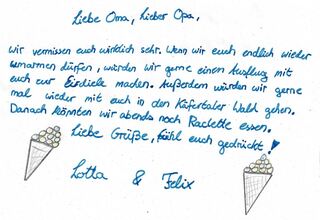 Liebe Oma, Lieber Opa,
wir vermissen euch wirklich sehr. Wenn wir euch endlich wieder
umarmen dürfen, würden wir gerne einen Ausflug mit
euch zur Eisdiele machen. Außerdem würden wir gerne
mal wieder mit euch in den Käfertaler Wald gehen.
Danach könnten wir abends noch Raclette essen.
Liebe Grüße, fühl euch gedrückt!
Lotta & Felix